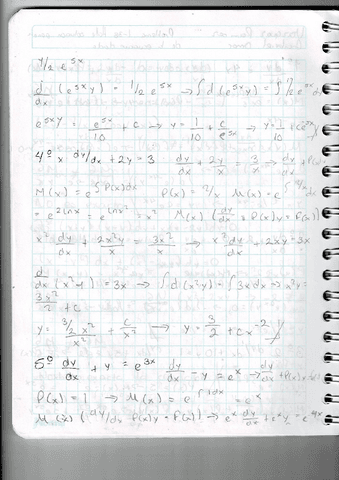 1/2 e^5x
d/dx (e^5x y) = 1/2 e^5x → ∫ d(e^5x y) = ∫ 1/2 e^5x dx
e^5x y = e^5x/10 + c → y = 1/10 + c/e^5x → y = 1/10 + c e
4º x dy/dx + 2y = 3 dy/dx + 2y/x = 3/x → dy/dx + P(x)
M(x) = e^∫P(x)dx P(x) = 2/x M(x) = e^∫
= e^2lnx = e^lnx² = x² M(x) (dy/dx + P(x)y = P(x))
x² dy/dx + 2x²y/x = 3x²/x → x² dy/dx + 2xy = 3x
d/dx (x²y) = 3x → ∫ d(x²y) = ∫ 3x dx → x²y =
3x²/2 + c
y = 3/2 x²/x² + c/x² → y = 3/2 + cx^-2
5º dy/dx + y = e^3x dy/dx - y = e^x → dy/dx + P(x)
P(x) = 1 → M(x) = e^∫1dx = e^x
M(x) (dy/dx P(x)y = P(x)) → e^x dy/dx + e^x y = e^4x